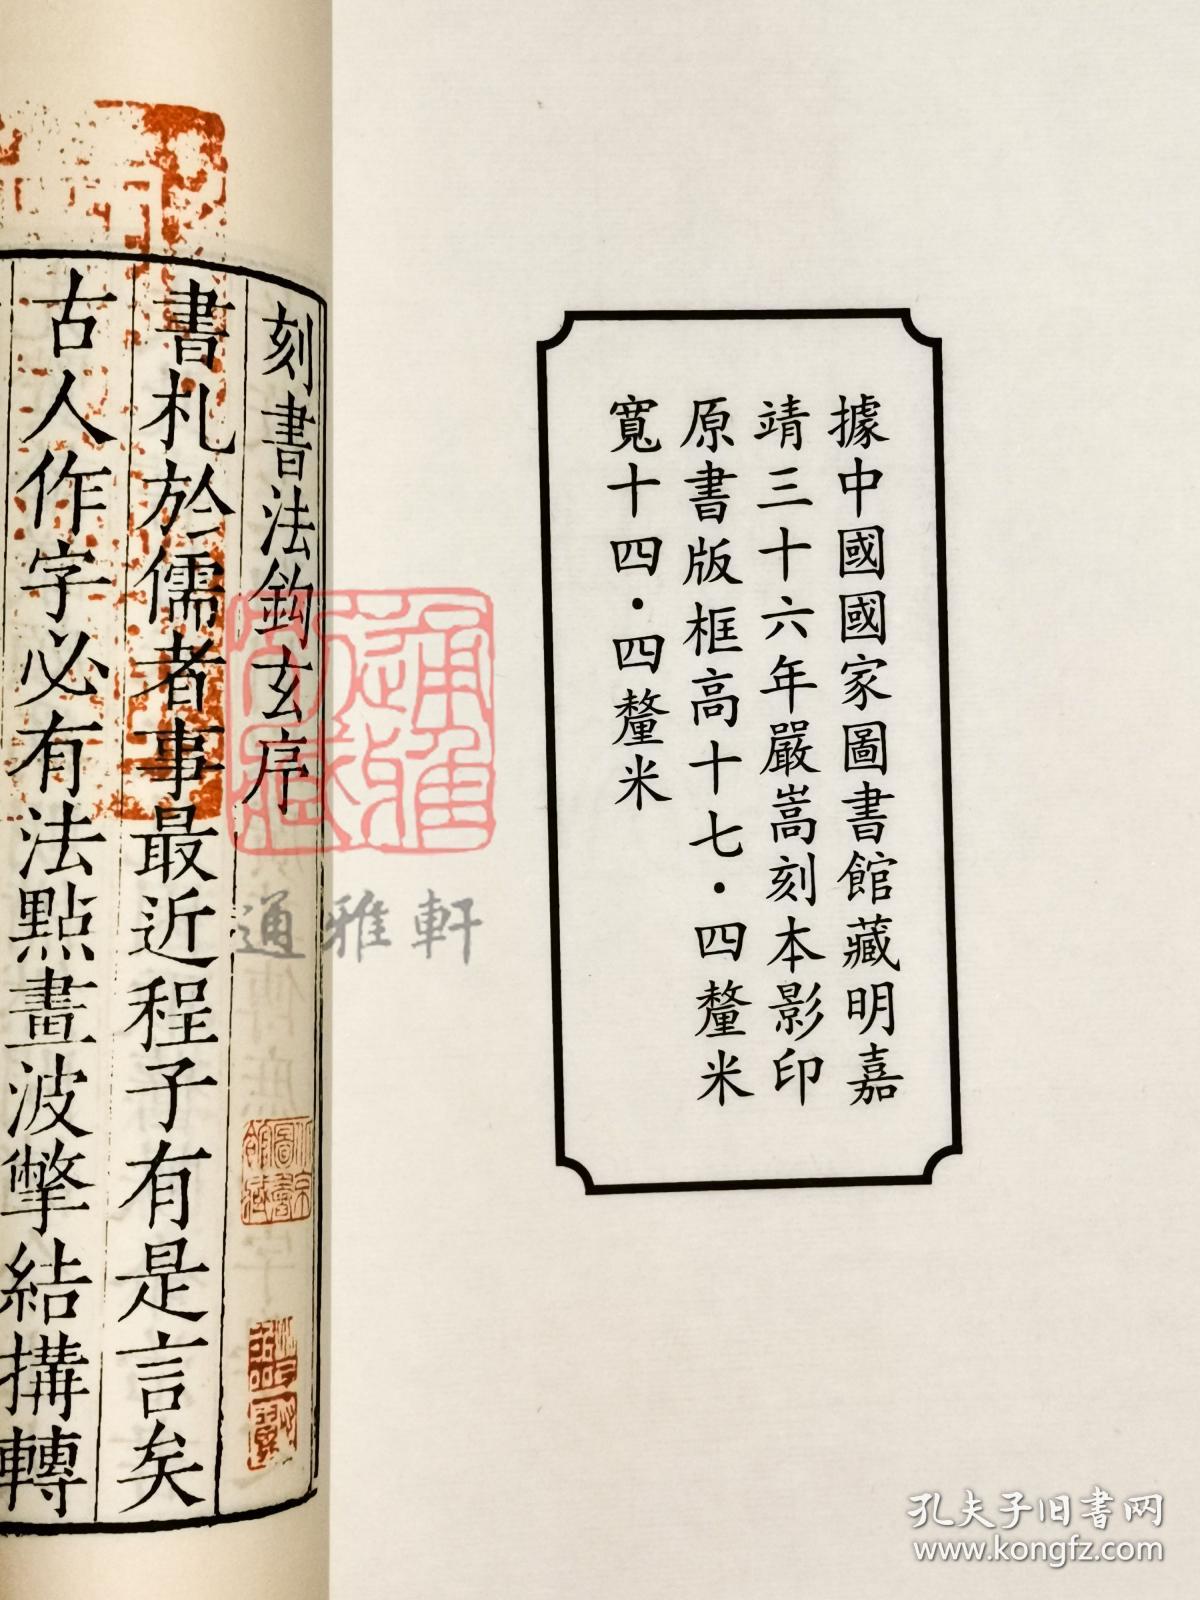 據中國國家圖書館藏明嘉
靖三十六年嚴嵩刻本影印
原書版框高十七·四釐米
寬十四·四釐米
刻書法鈎玄序
書札於儒者事最近程子有是言矣
古人作字必有法點畫波撆結搆轉
通雅軒
北京圖書館藏
孔夫子旧书网
www.kongfz.com